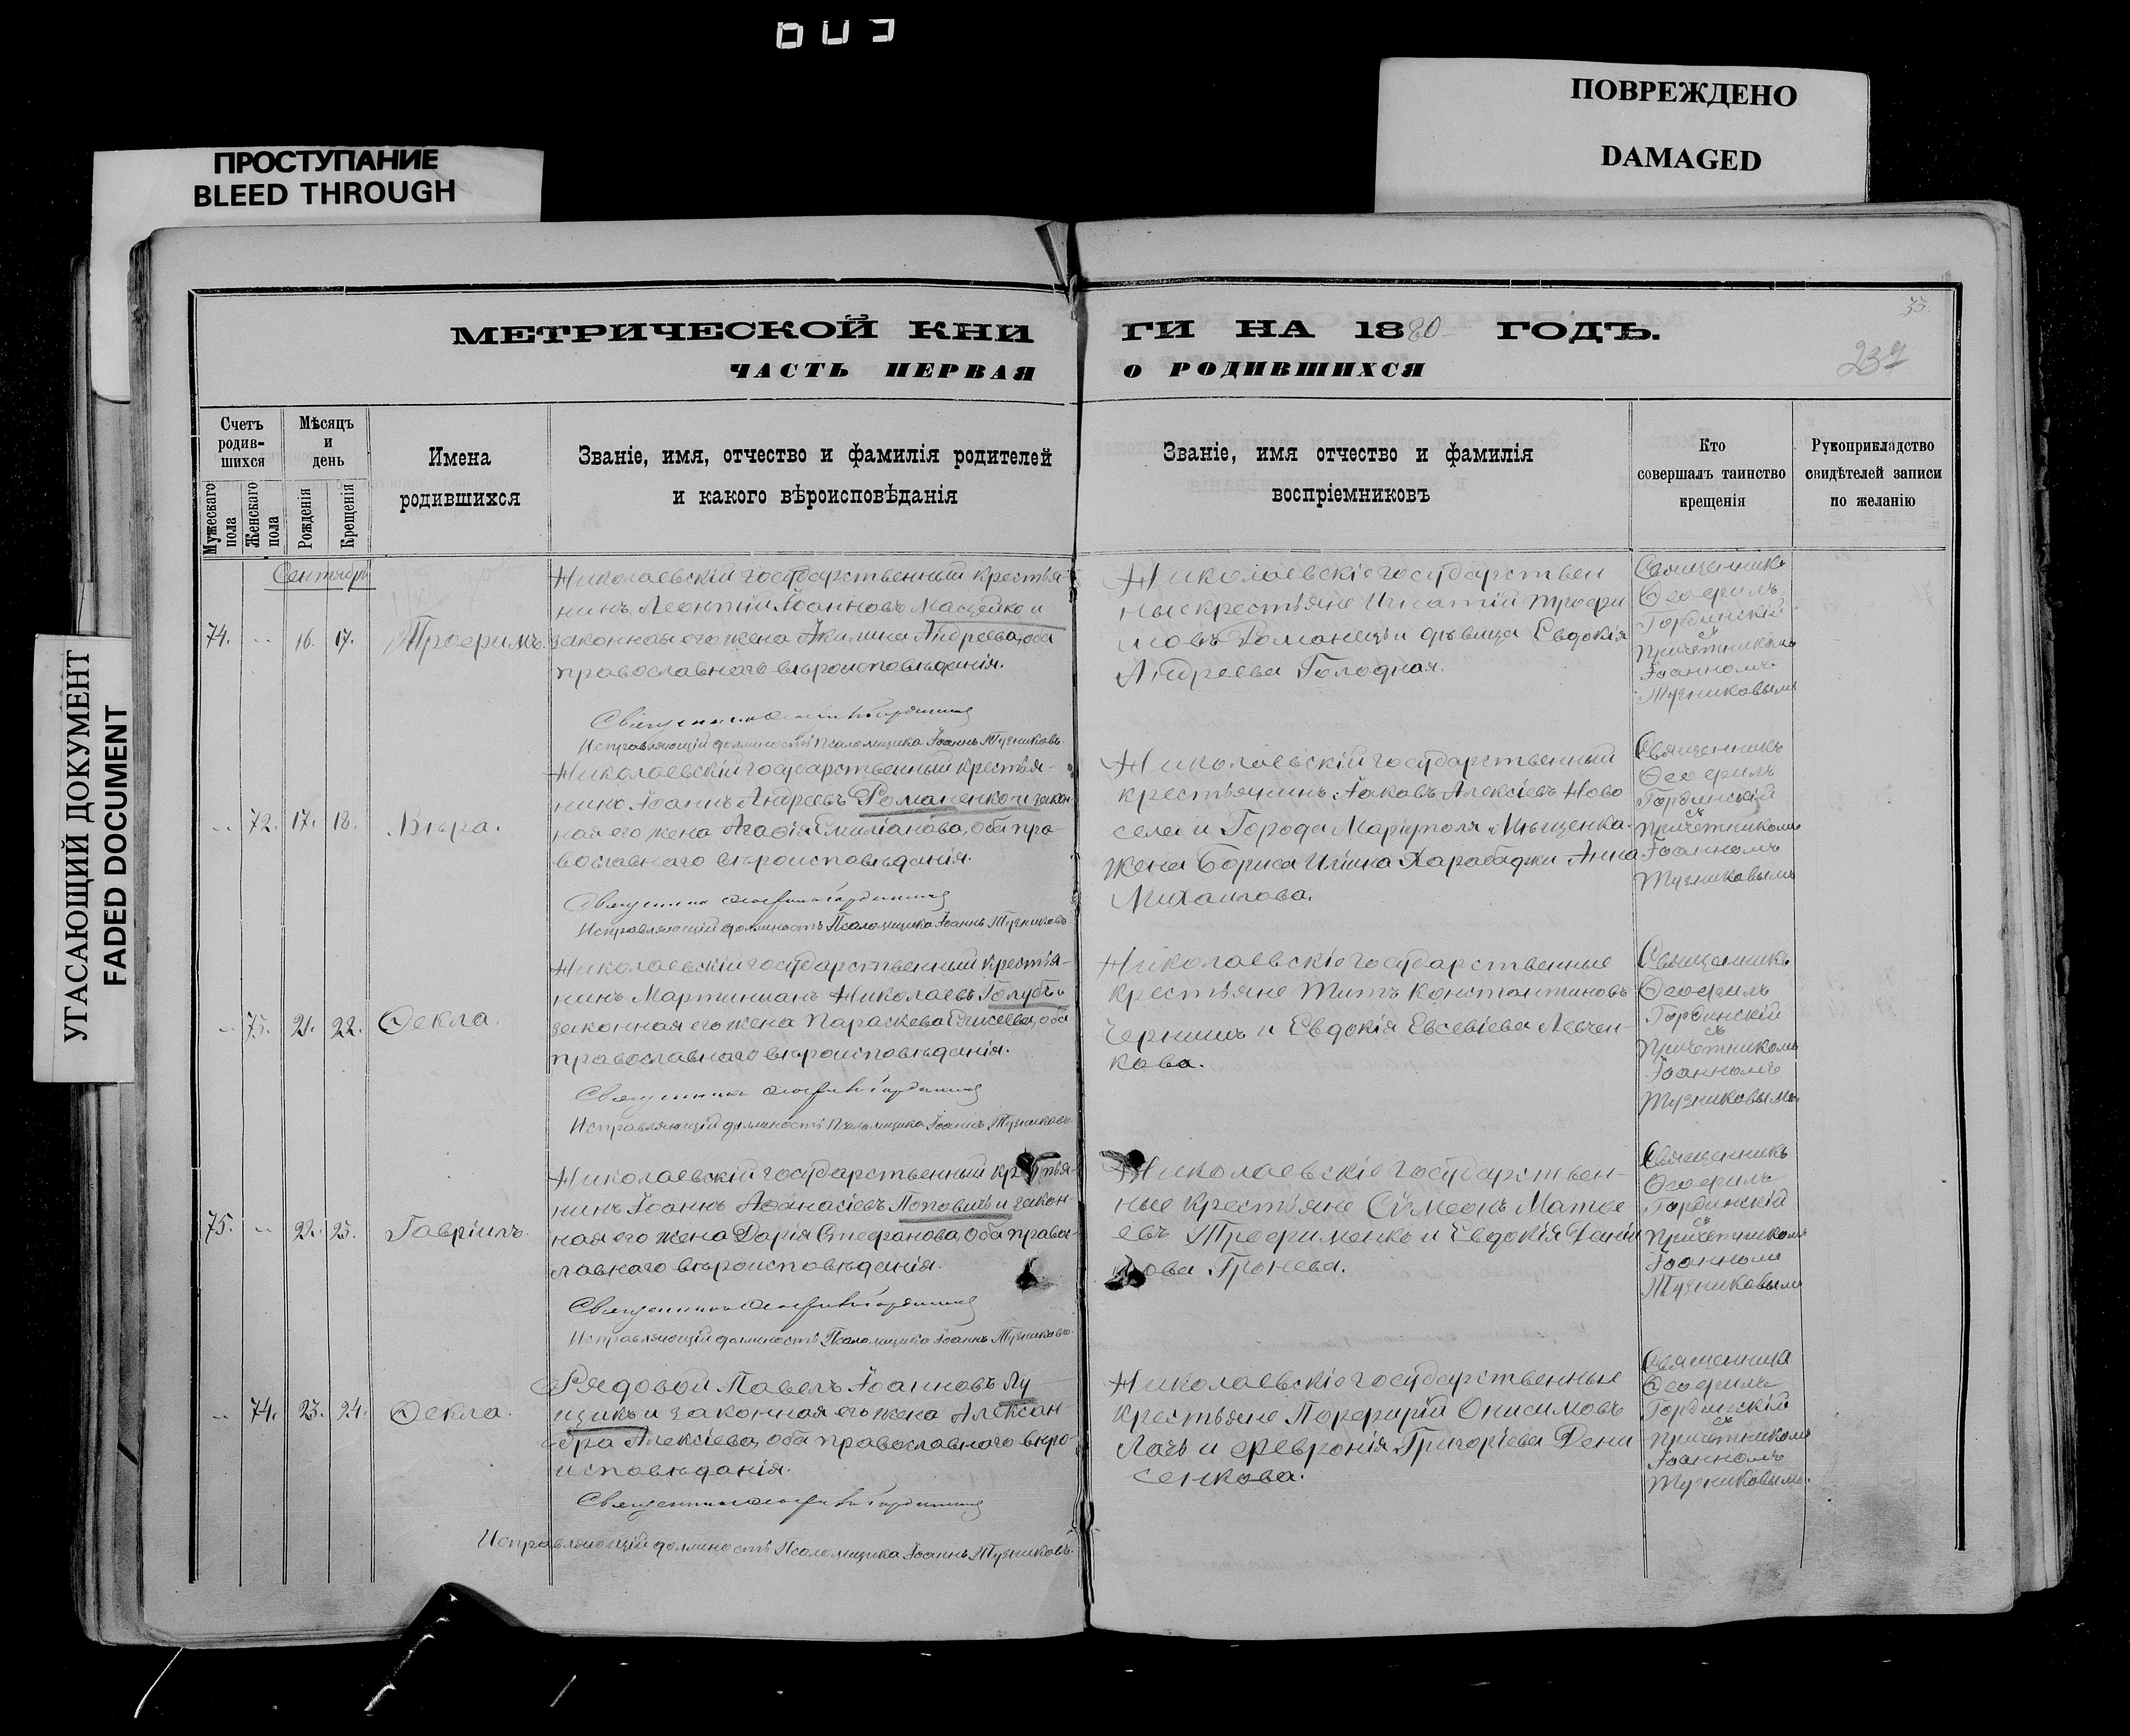 ПРОСТУПАНИЕ
BLEED THROUGH
ПОВРЕЖДЕНО
DAMAGED
УГАСАЮЩИЙ ДОКУМЕНТ
FADED DOCUMENT
МЕТРИЧЕСКОЙ КНИ
ГИ НА 1880 ГОДЪ.
ЧАСТЬ ПЕРВАЯ
О РОДИВШИХСЯ
33.
237
Счетъ родив-шихся
Мѣсяцъ и день
Имена родившихся
Званіе, имя, отчество и фамилія родителей
и какого вѣроисповѣданія
Званіе, имя отчество и фамилія
воспріемниковъ
Кто
совершалъ таинство
крещенія
Рукоприкладство
свидѣтелей записи
по желанію
Мужескаго пола
Женскаго пола
Рожденія
Крещенія
Сентябрь
74. -- 16. 17. Трофимъ.
Николаевскій государственный крестья-
нинъ Леонтій Іоанновъ и
законная его жена Акилина Андреева, оба
православнаго вѣроисповѣданія.
Исправляющій должность Псаломщика Іоаннъ Тузниковъ.
Николаевскіе государствен
ные крестьяне Игнатій Трофи
мовъ Романец и дѣвица Евдокія
Андреева Голодная.
Священникъ
Ѳеофилъ
Гординскій
съ
Причетникомъ
Іоанномъ
Тузниковымъ
-- 72. 17. 18. Вѣра.
Николаевскій государственный крестья-
нинъ Іоаннъ Андреевъ Романенко и закон
ная его жена Агафія Емиліанова, оба пра-
вославнаго вѣроисповѣданія.
Исправляющій должность Псаломщика Іоаннъ Тузниковъ
Николаевскій государственный
крестьянинъ Іаковъ Алексіевъ Ново
села и Города Маріуполя Мѣщенка
жена Бориса Ильина Карабаджи Анна
Михаилова.
Священникъ
Ѳеофилъ
Гординскій
съ
Причетникомъ
Іоанномъ
Тузниковымъ
-- 73. 21. 22. Ѳекла.
Николаевскій государственный крестья-
нинъ Мартиніанъ Николаевъ Голубъ и
законная его жена Параскева Елисеева, оба
православнаго вѣроисповѣданія.
Исправляющій должность Псаломщика Іоаннъ Тузниковъ
Николаевскіе государственные
крестьяне Титъ Константиновъ
Чернышъ и Евдокія Евсевіева Левчен-
кова.
Священникъ
Ѳеофилъ
Гординскій
съ
Причетникомъ
Іоанномъ
Тузниковымъ
75. -- 22. 23. Гавріилъ.
Николаевскій государственный крестья-
нинъ Іоаннъ Аѳанасіевъ Поповичъ и закон-
ная его жена Дарія Стефанова, оба право-
славнаго вѣроисповѣданія.
Исправляющій должность Псаломщика Іоаннъ Тузниковъ
Николаевскіе государствен-
ные крестьяне Сѵмеонъ Матѳе
евъ Трофименко и Евдокія Даніи
лова Гронева.
Священникъ
Ѳеофилъ
Гординскій
съ
Причетникомъ
Іоанномъ
Тузниковымъ
-- 74. 23. 24. Ѳекла.
Рядовой Павелъ Іоанновъ Лу
щикъ и законная его жена Алексан-
дра Алексіева, оба православнаго вѣро-
исповѣданія.
Исправляющій должность Псаломщика Іоаннъ Тузниковъ.
Николаевскіе государственные
крестьяне Порфирій Онисимовъ
Лагъ и Февронія Григоріева Дени
сенкова.
Священникъ
Ѳеофилъ
Гординскій
съ
Причетникомъ
Іоанномъ
Тузниковымъ.